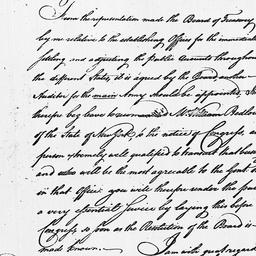 From the representation made the Board of Treasury
by me relative to the establishing Offices for the immediate
settling and adjusting the Public Accounts throughout
the different States, it is agreed by the Board another
Auditor for the main Army should be appointed, I
therefore beg leave to recommend Mr William Bedlow
of the State of New York, to the notice of Congress, as
person extremely well qualified to transact that busi
and who will be the most agreeable to the Gent
in that Office: you will therefore render the pu
a very essential Service by laying this before
Congress, so soon as the Resolution of the Board is
made known.
I am with great regard